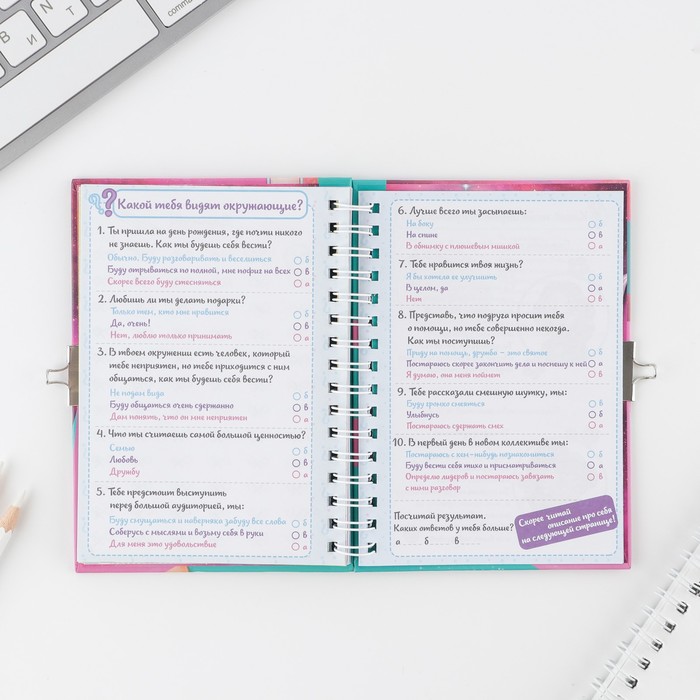 command
В
И
Ь
? Какой тебя видят окружающие?
1. Ты пришла на день рождения, где почти никого
не знаешь. Как ты будешь себя вести?
Обычно. Буду разговаривать и веселиться б
Буду отрываться по полной, мне пофиг на всех в
Скорее всего буду стесняться а
2. Любишь ли ты делать подарки?
Только тем, кто мне нравится б
Да, очень! в
Нет, люблю только принимать а
3. В твоем окружении есть человек, который
тебе неприятен, но тебе приходится с ним
общаться, как ты будешь себя вести?
Не подам вида б
Буду общаться очень сдержанно в
Дам понять, что он мне неприятен а
4. Что ты считаешь самой большой ценностью?
Семью б
Любовь в
Дружбу а
5. Тебе предстоит выступить
перед большой аудиторией, ты:
Буду смущаться и наверняка забуду все слова б
Соберусь с мыслями и возьму себя в руки в
Для меня это удовольствие а
6. Лучше всего ты засыпаешь:
На боку б
На спине в
В обнимку с плюшевым мишкой а
7. Тебе нравится твоя жизнь?
Я бы хотела ее улучшить б
В целом, да а
Нет в
8. Представь, что подруга просит тебя
о помощи, но тебе совершенно некогда.
Как ты поступишь?
Приду на помощь, дружба – это святое б
Постараюсь скорее закончить дела и поспешу к ней а
Я думаю, она меня поймет в
9. Тебе рассказали смешную шутку, ты:
Буду громко смеяться б
Улыбнусь в
Постараюсь сдержать смех а
10. В первый день в новом коллективе ты:
Постараюсь с кем-нибудь познакомиться б
Буду вести себя тихо и присматриваться а
Определю лидеров и постараюсь завязать в
с ними разговор
Посчитай результат.
Каких ответов у тебя больше?
а б в
Скорее читай
описание про себя
на следующей странице!